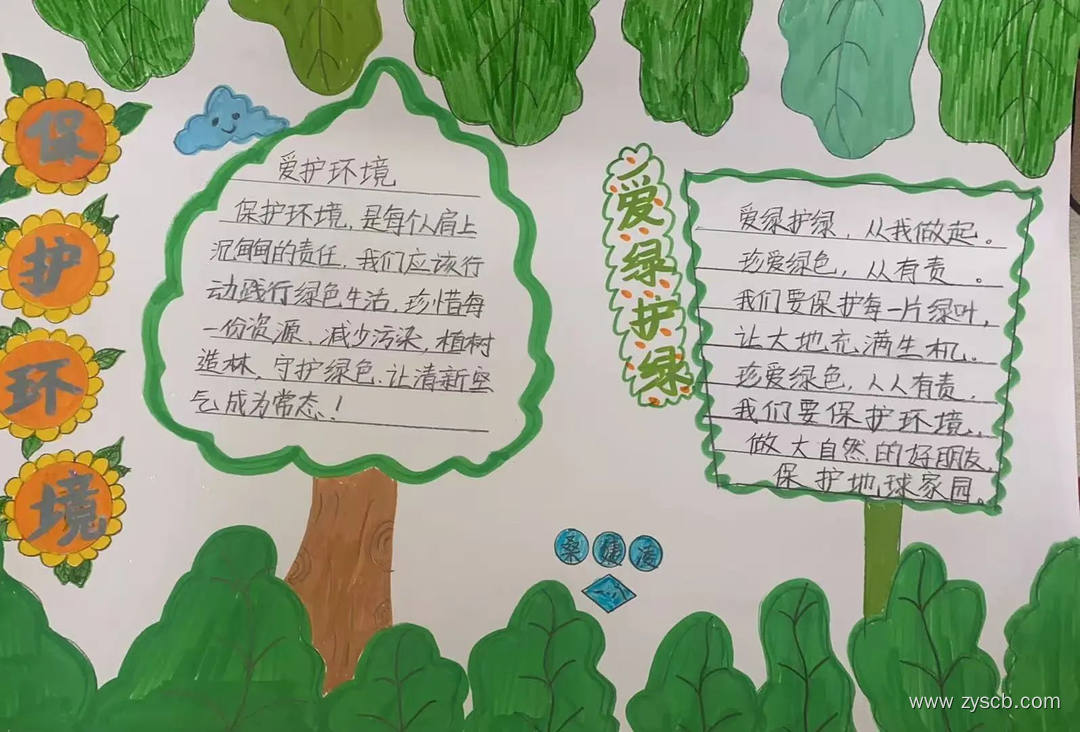 保
护
环
境
爱护环境
保护环境,是每个人肩上
沉甸甸的责任,我们应该行
动践行绿色生活,珍惜每
一份资源、减少污染,植树
造林、守护绿色.让清新空
气成为常态!
爱
绿
护
绿
爱绿护绿,从我做起。
珍爱绿色,从有责。
我们要保护每一片绿叶,
让大地充满生机。
珍爱绿色,人人有责,
我们要保护环境,
做大自然的好朋友,
保护地球家园。
桑 凌
www.zyscb.com